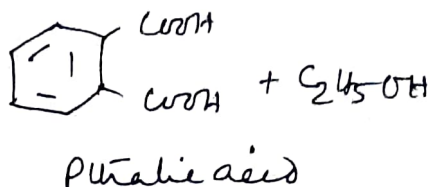 COOH
COOH + C2H5-OH
Pthalic acid